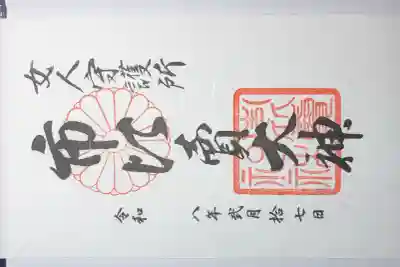 女人守護所
市比賣大神
令和八年弐月拾七日